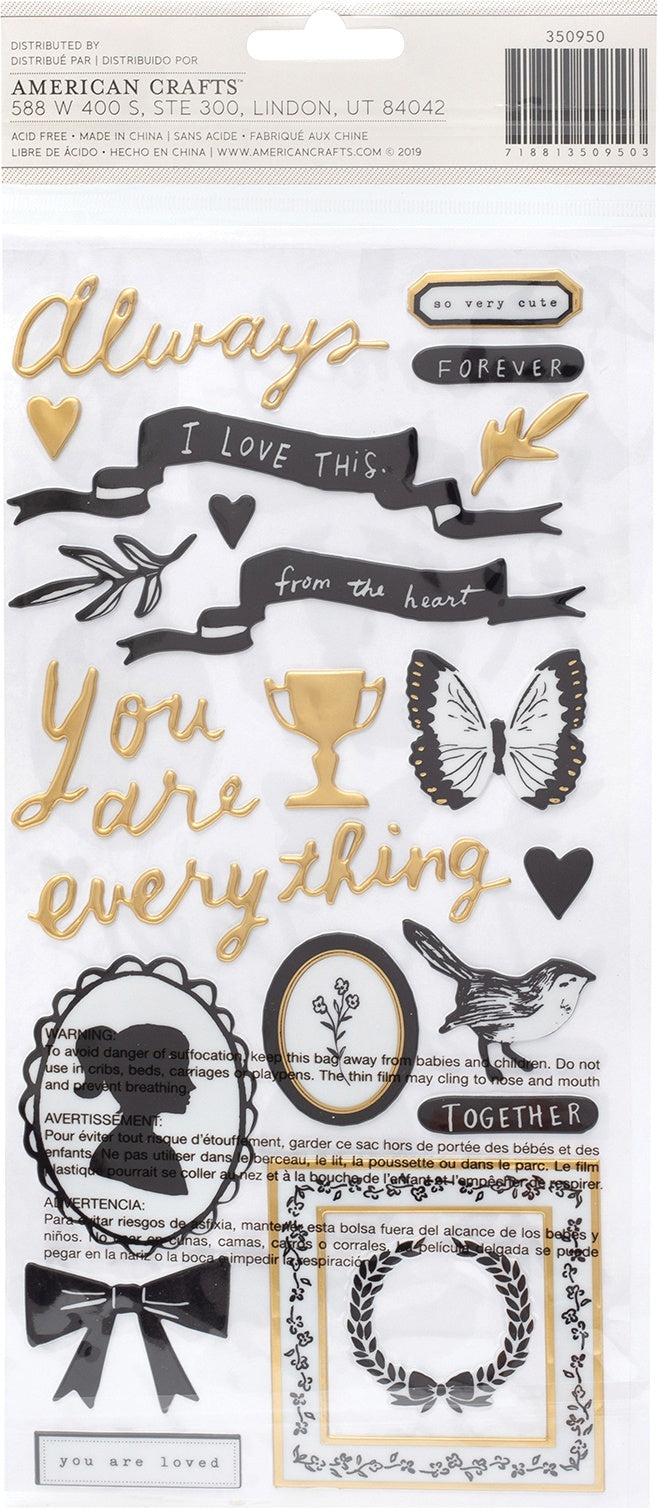 DISTRIBUTED BY
DISTRIBUÉ PAR | DISTRIBUIDO POR
AMERICAN CRAFTS™
588 W 400 S, STE 300, LINDON, UT 84042
ACID FREE • MADE IN CHINA | SANS ACIDE • FABRIQUÉ AUX CHINE
LIBRE DE ÁCIDO • HECHO EN CHINA | WWW.AMERICANCRAFTS.COM © 2019
350950
718813509503
Always
so very cute
FOREVER
I LOVE THiS.
from the heart
You
are
everything
WARNING:
To avoid danger of suffocation, keep this bag away from babies and children. Do not
use in cribs, beds, carriages or playpens. The thin film may cling to nose and mouth
and prevent breathing.
TOGETHER
AVERTISSEMENT:
Pour éviter tout risque d'étouffement, garder ce sac hors de portée des bébés et des
enfants. Ne pas utiliser dans le berceau, le lit, la poussette ou dans le parc. Le film
plastique pourrait se coller au nez et à la bouche de l'enfant et l'empêcher de respirer.
ADVERTENCIA:
Para evitar riesgos de asfixia, mantener esta bolsa fuera del alcance de los bebés y
niños. No usar en cunas, camas, carros o corrales. La película delgada se puede
pegar en la nariz o la boca e impedir la respiración.
you are loved